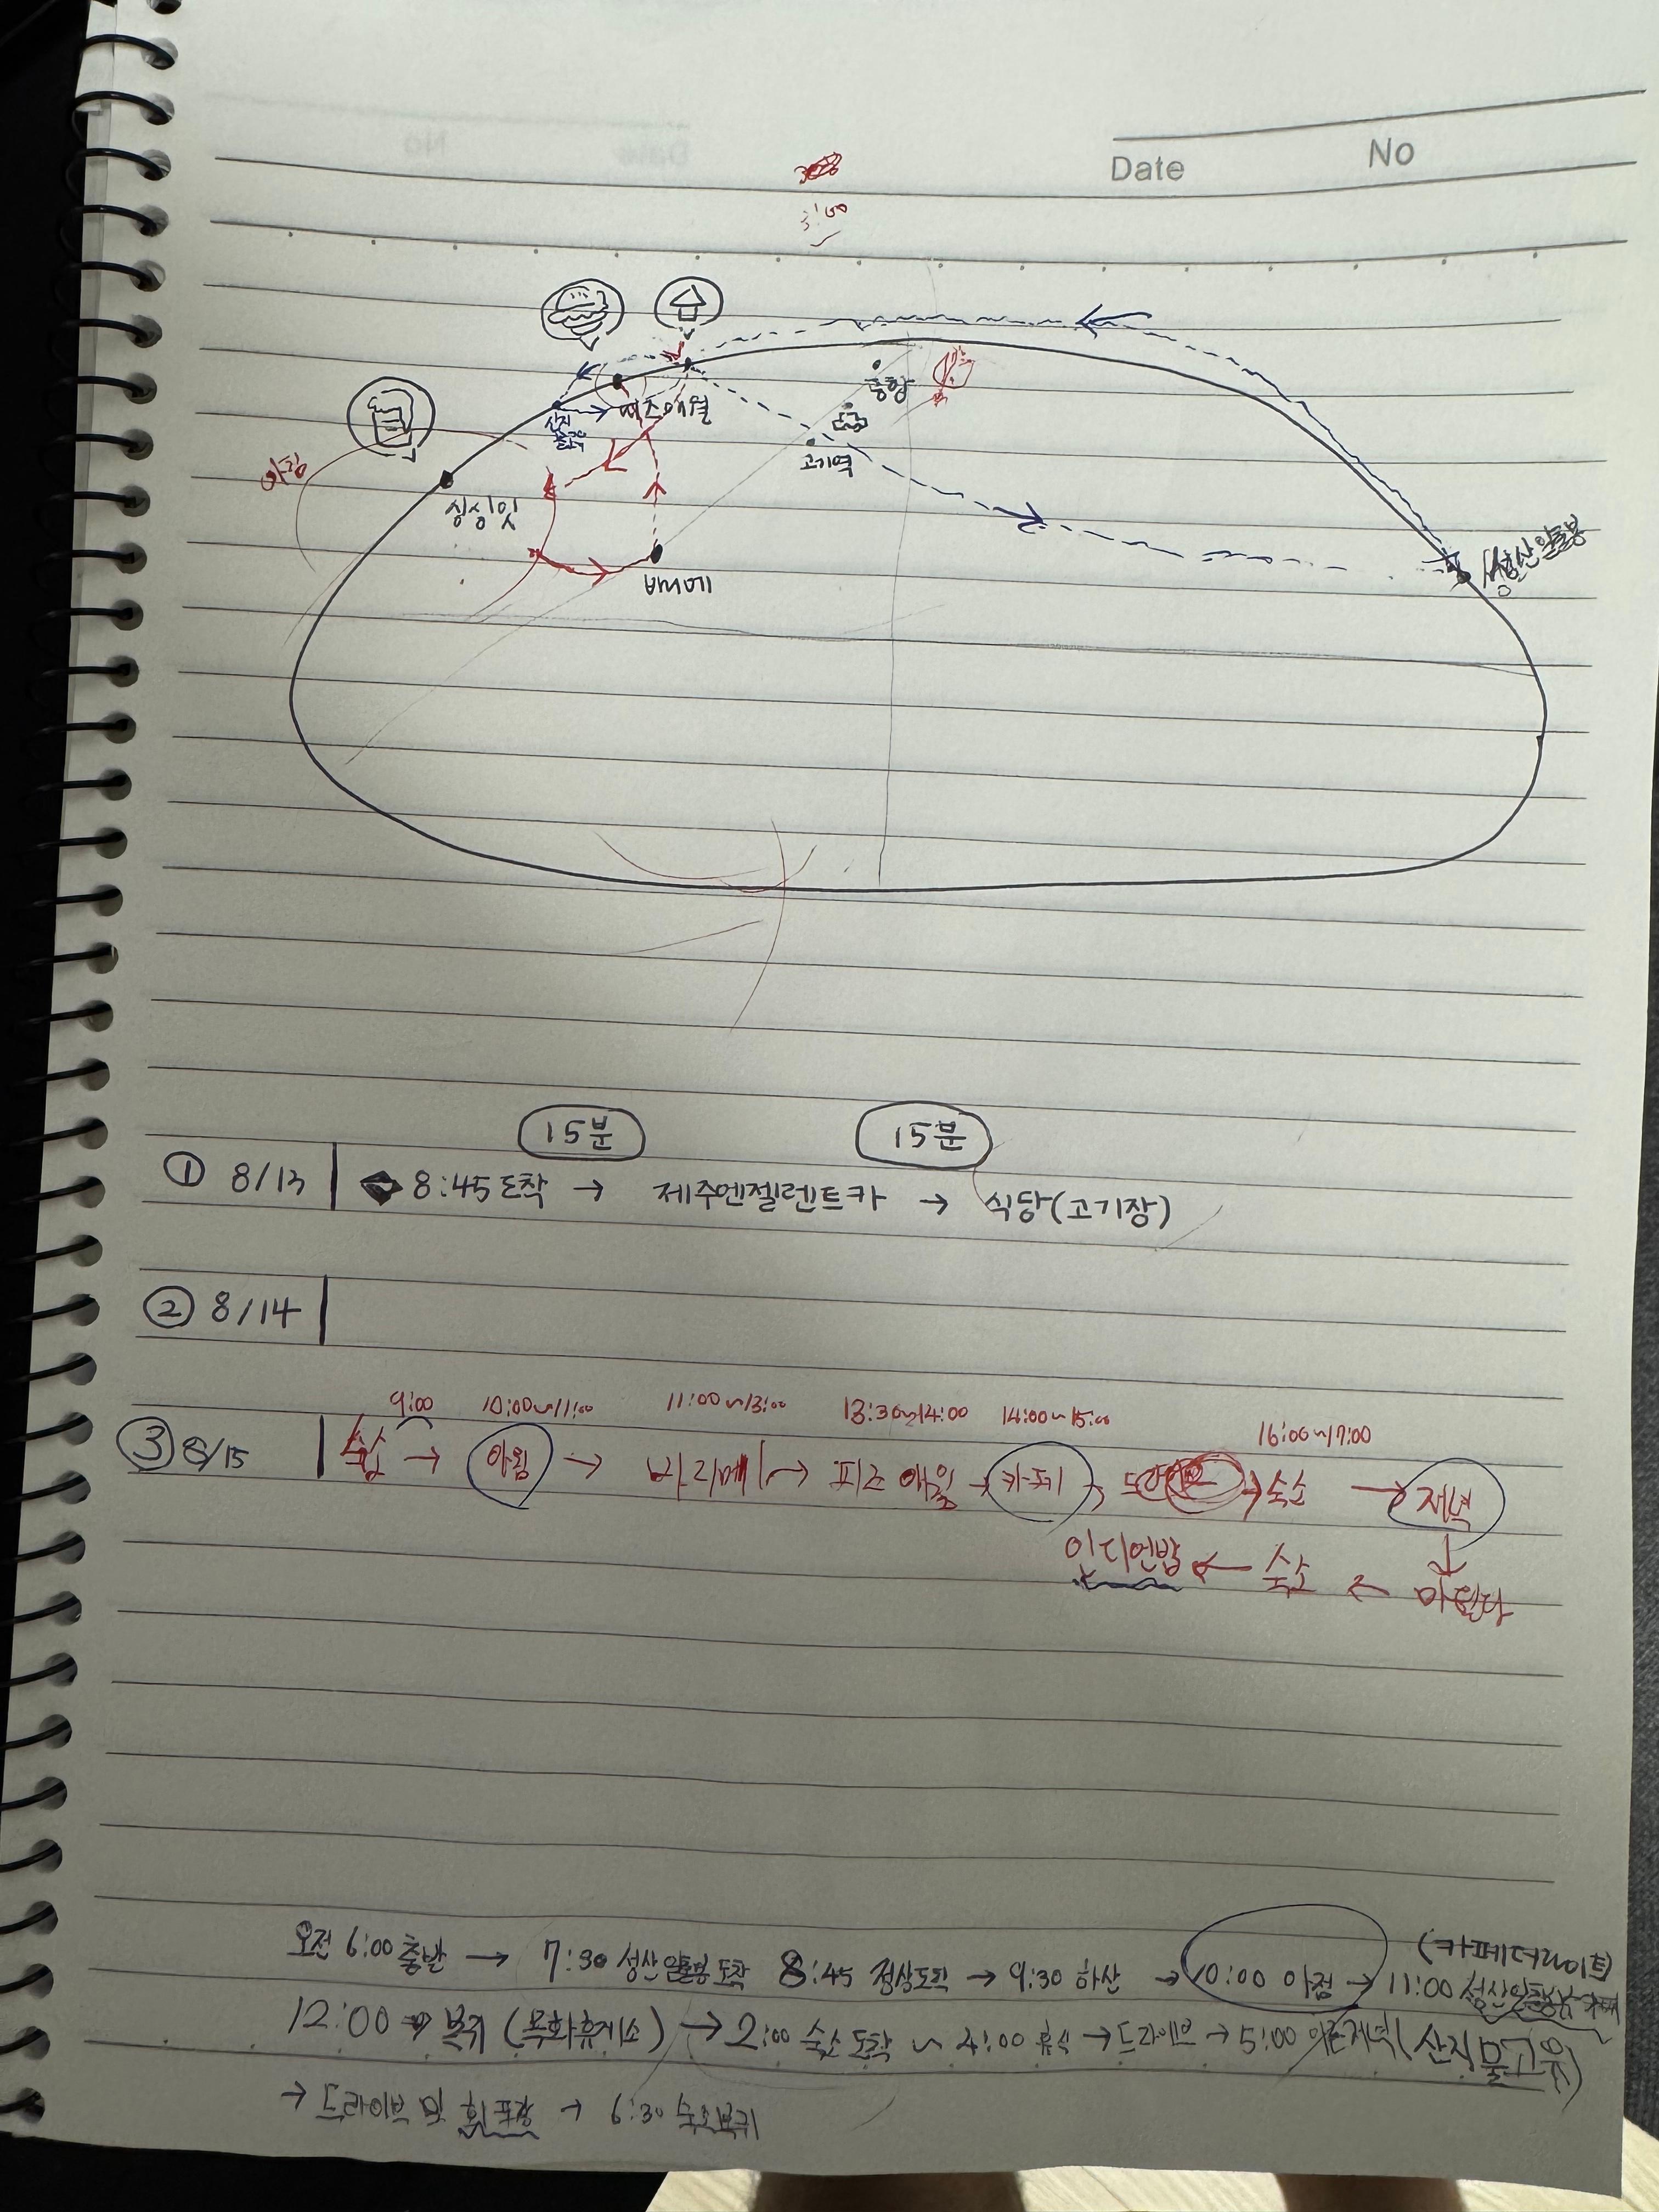 Date No
3:00
공항
피즈애월
고기역
싱싱잇
성산일출봉
바리메
15분 15분
① 8/13 8:45 도착 → 제주엔젤렌트카 → 식당(고기장)
② 8/14
9:00 10:00~11:00 11:00~13:00 13:30~14:00 14:00~15:00 16:00~17:00
③ 8/15 숙소 → 아침 → 바리메 → 피즈 애월 → 카페 → → 숙소 → 저녁
인디언밥 ← 숙소 ← 마틸다
오전 6:00 출발 → 7:30 성산일출봉 도착 8:45 정상도착 → 9:30 하산 → 10:00 아점 → 11:00 성산일출봉 카페
(카페더라이트)
12:00 → 복귀 (목화휴게소) → 2:00 숙소 도착 ~ 4:00 휴식 → 드라이브 → 5:00 이른저녁 (산지물고육)
→ 드라이브 및 회포장 → 6:30 숙소복귀